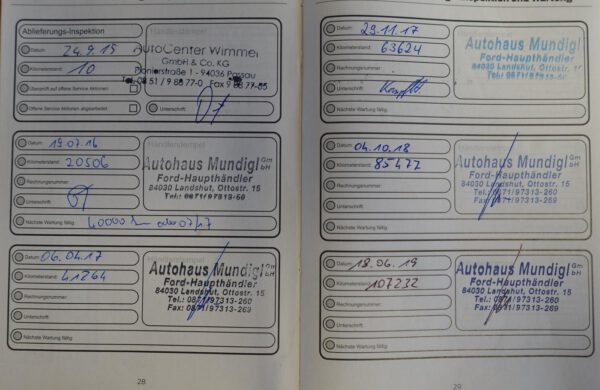 Ablieferungs-Inspektion
Datum: 24.9.15
Kilometerstand: 10
Überprüft auf offene Service Aktionen
Offene Service Aktionen abgearbeitet
Händlerstempel
AutoCenter Wimmer
GmbH & Co. KG
Pionierstraße 1 - 94036 Passau
Tel. 08 51 / 9 88 77-0 Fax 9 88 77-85
Unterschrift:
Datum: 19.07.16
Kilometerstand: 20506
Rechnungsnummer:
Unterschrift:
Nächste Wartung fällig: 40000 km oder 07/17
Händlerstempel
Autohaus Mundigl GmbH
Ford-Haupthändler
84030 Landshut, Ottostr. 15
Datum: 06.04.17
Kilometerstand: 41264
Rechnungsnummer:
Unterschrift:
Nächste Wartung fällig:
Autohaus Mundigl GmbH
Ford-Haupthändler
84030 Landshut, Ottostr. 15
Tel.: 0871/97313-260
Fax: 0871/97313-269
28
Datum: 29.11.17
Kilometerstand: 63624
Rechnungsnummer:
Unterschrift:
Nächste Wartung fällig:
Autohaus Mundigl GmbH
Ford-Haupthändler
84030 Landshut, Ottostr. 15
Datum: 04.10.18
Kilometerstand: 85472
Rechnungsnummer:
Unterschrift:
Nächste Wartung fällig:
Autohaus Mundigl GmbH
Ford-Haupthändler
84030 Landshut, Ottostr. 15
Tel.: 0871/97313-260
Fax: 0871/97313-269
Datum: 18.06.19
Kilometerstand: 107232
Rechnungsnummer:
Unterschrift:
Nächste Wartung fällig:
Autohaus Mundigl GmbH
Ford-Haupthändler
84030 Landshut, Ottostr. 15
Tel.: 0871/97313-260
Fax: 0871/97313-269
29